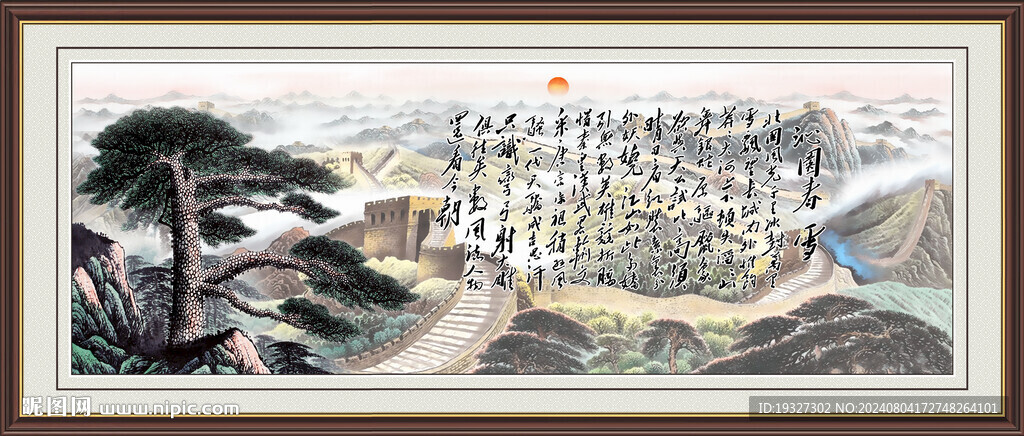 沁園春 雪
北国风光千里冰封万里
雪飘望长城内外惟余
莽莽大河上下顿失滔滔山
舞银蛇原驰蜡象
欲与天公试比高须
晴日看红装素裹分
外妖娆江山如此多娇
引无数英雄竞折腰
惜秦皇汉武略输文
采唐宗宋祖稍逊风
骚一代天骄成吉思汗
只識弯弓射大雕
俱往矣数风流人物
還看今朝
昵图网 www.nipic.com
ID:19327302 NO:20240804172748264101